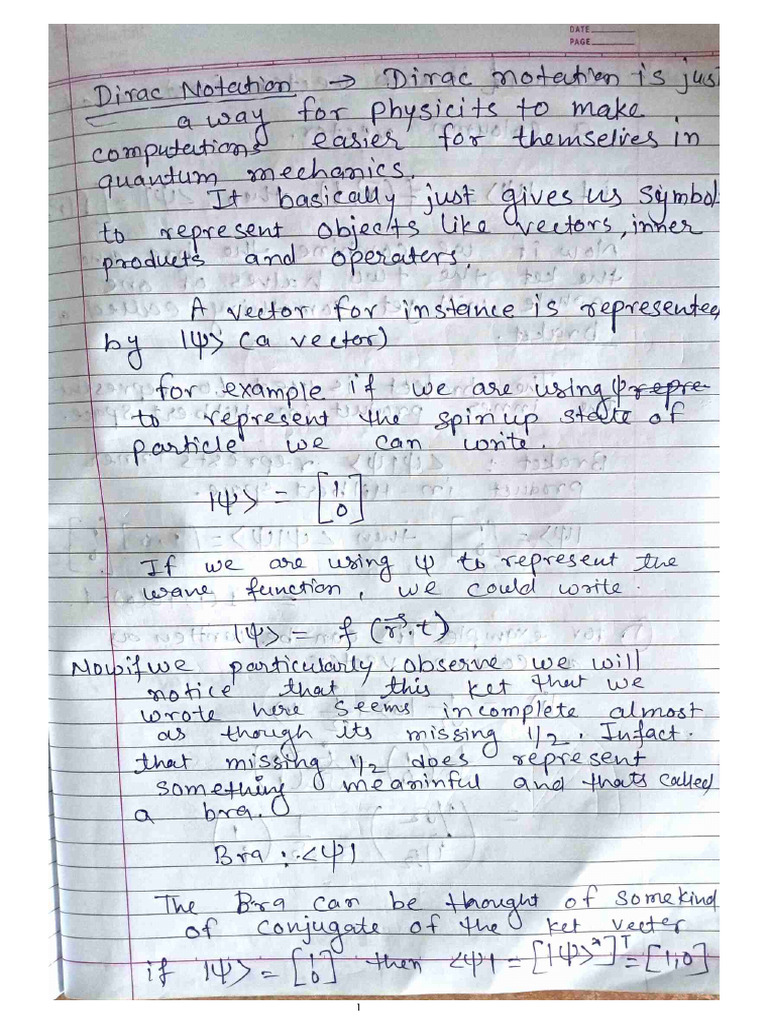 DATE
PAGE
Dirac Notation → Dirac notation is jus
a way for physicits to make
computations easier for themselves in
quantum mechanics.
It basically just gives us symbol
to represent objects like vectors, inner
products and operaters,
A vector for instance is represented
by |ψ> (a vector)
for example if we are using ψ repre-
to represent the spin up state of
particle we can write.
|ψ> = [1 0]
If we are using ψ to represent the
wave function, we could write.
|ψ> = f (r⃗,t)
Now if we particularly observe we will
notice that this ket that we
wrote here seems incomplete almost
as though its missing 1/2. Infact.
that missing 1/2 does represent
something meaninful and thats called
a bra.
Bra : <ψ|
The Bra can be thought of some kind
of conjugate of the ket vecter
if |ψ> = [1 0] then <ψ| = [|ψ>*]ᵀ = [1,0]
1